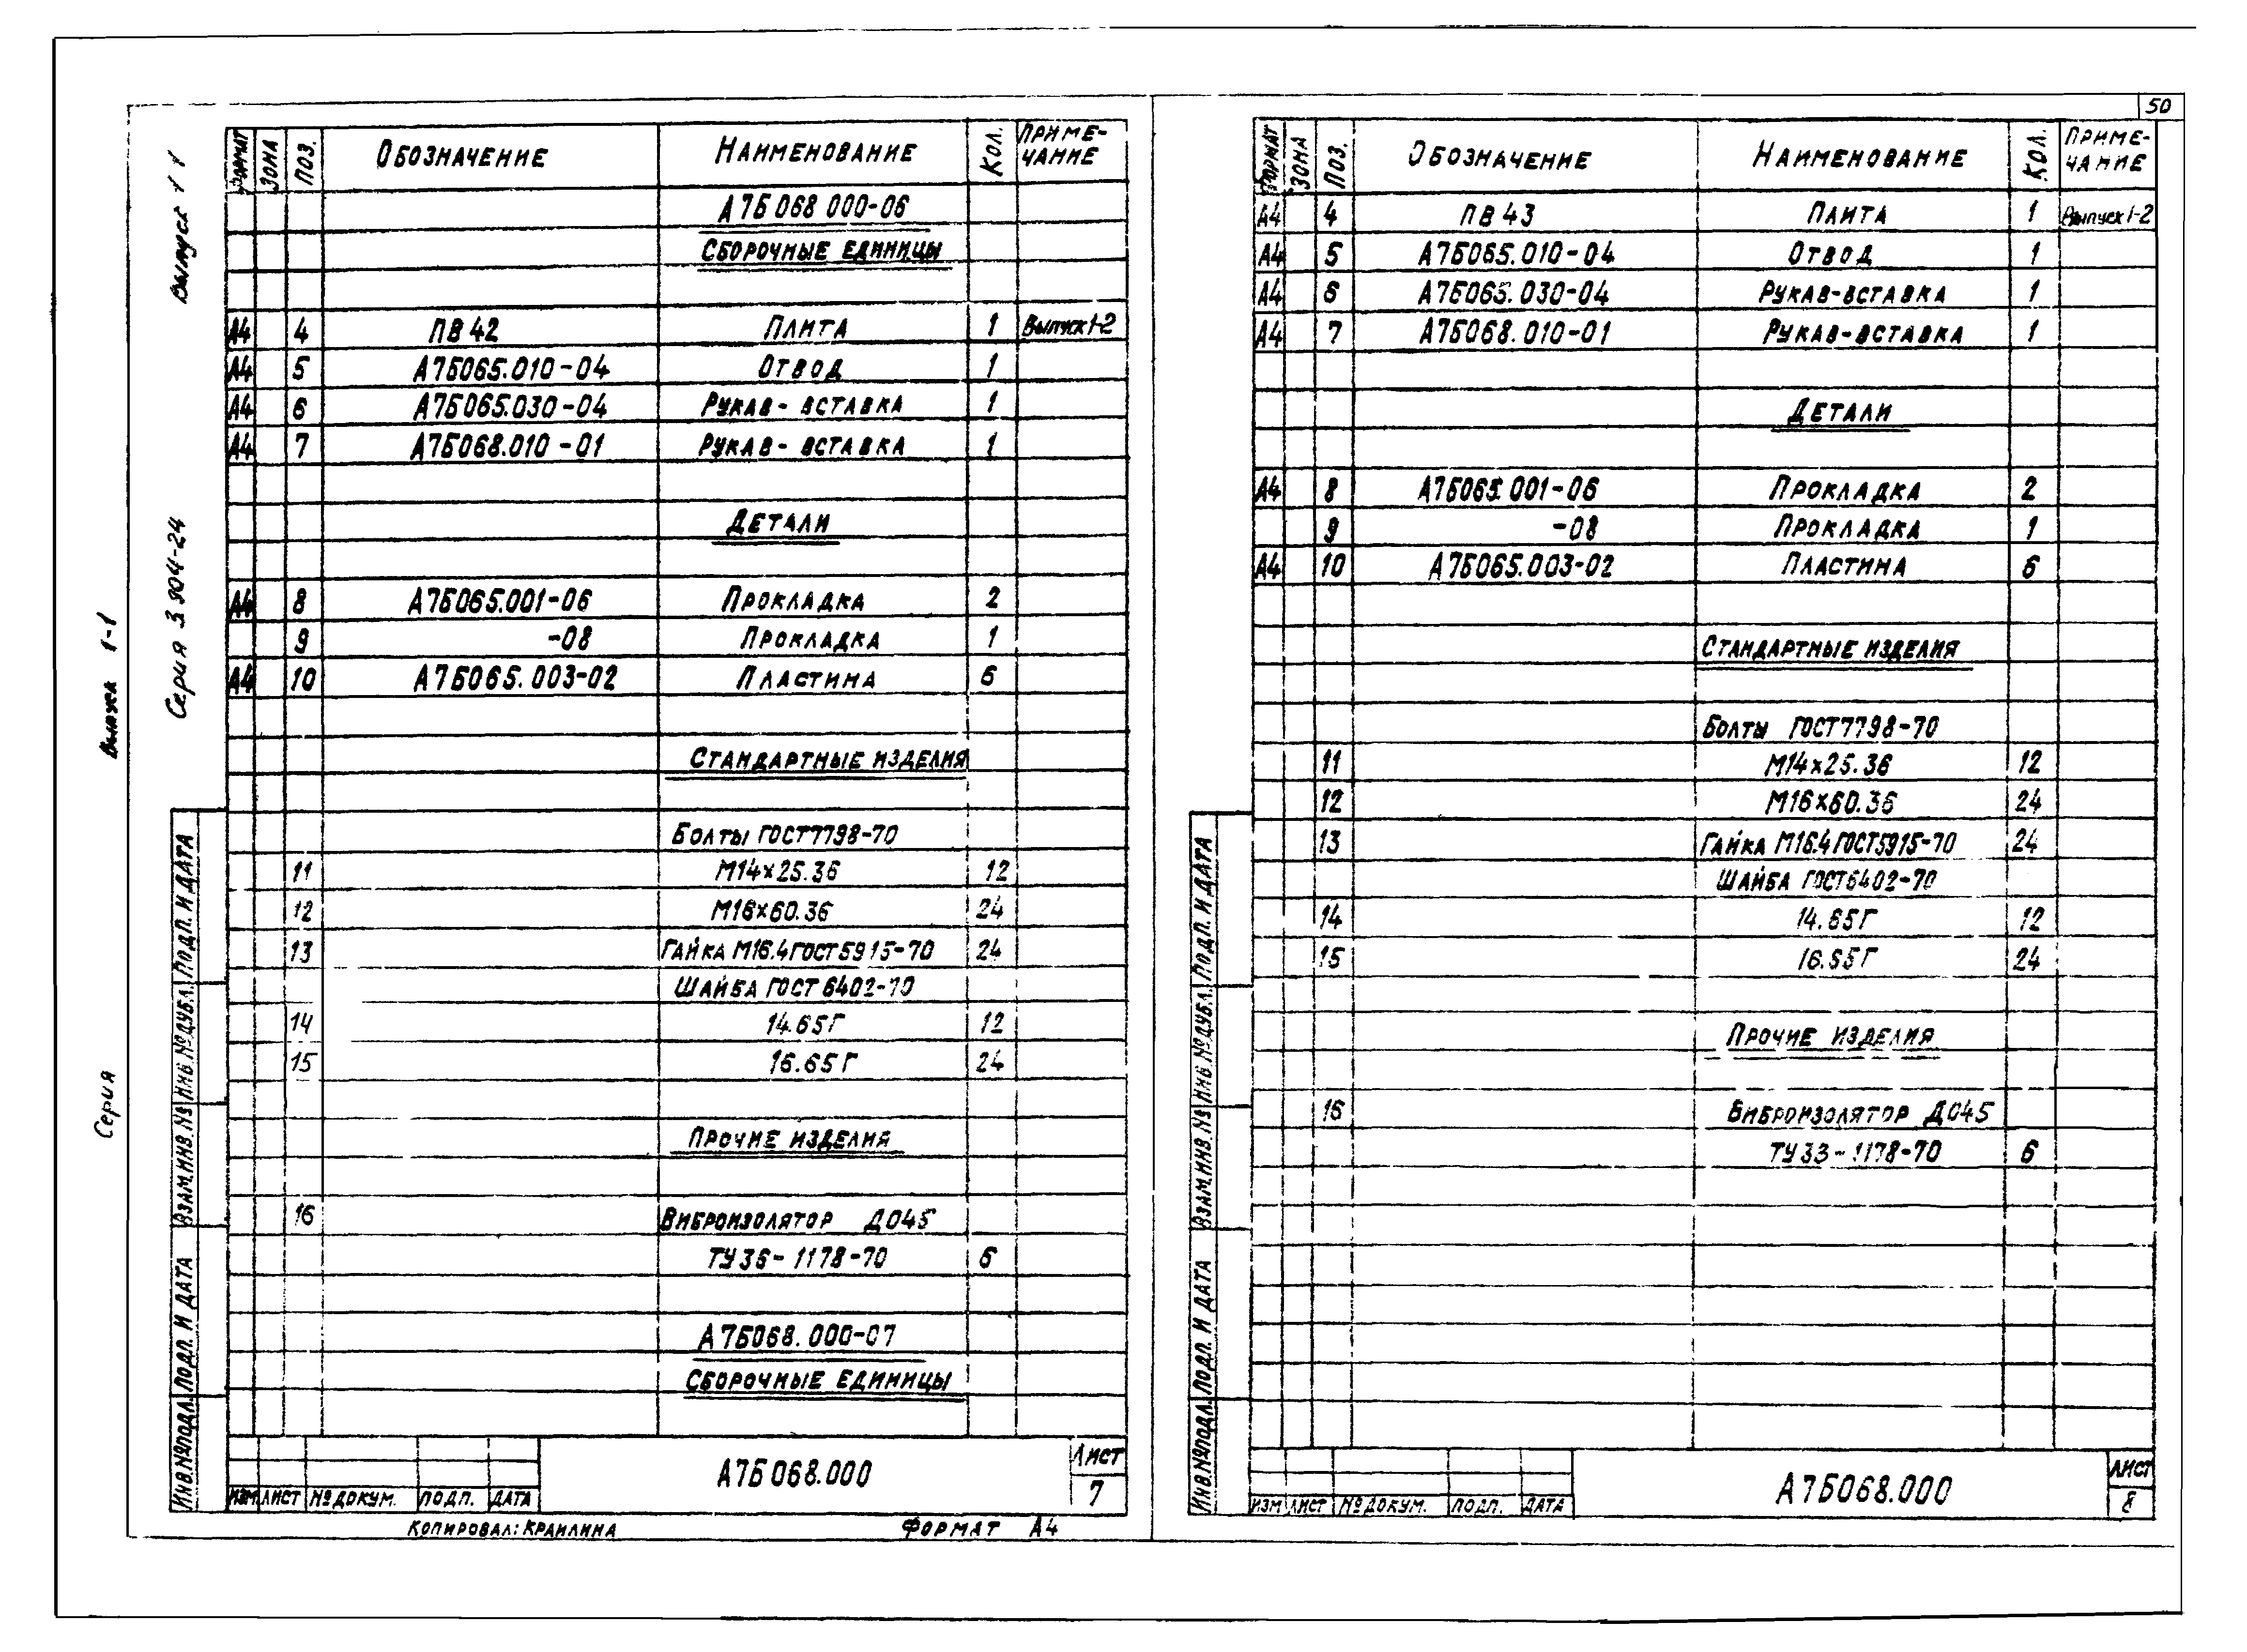 50
Выпуск 1-1
Серия 3.904-24
Выпуск 1-1
Серия
ФОРМАТ ЗОНА ПОЗ. ОБОЗНАЧЕНИЕ НАИМЕНОВАНИЕ КОЛ. ПРИМЕ-
ЧАНИЕ
А7Б068 000-06
СБОРОЧНЫЕ ЕДИНИЦЫ
А4 4 ПВ42 ПЛИТА 1 Выпуск 1-2
А4 5 А7Б065.010-04 ОТВОД 1
А4 6 А7Б065.030-04 РУКАВ-ВСТАВКА 1
А4 7 А7Б068.010-01 РУКАВ-ВСТАВКА 1
ДЕТАЛИ
А4 8 А7Б065.001-06 ПРОКЛАДКА 2
9 -08 ПРОКЛАДКА 1
А4 10 А7Б065.003-02 ПЛАСТИНА 6
СТАНДАРТНЫЕ ИЗДЕЛИЯ
БОЛТЫ ГОСТ7798-70
11 М14×25.36 12
12 М16×60.36 24
13 ГАЙКА М16.4 ГОСТ5915-70 24
ШАЙБА ГОСТ 6402-70
14 14.65Г 12
15 16.65Г 24
ПРОЧИЕ ИЗДЕЛИЯ
16 ВИБРОИЗОЛЯТОР ДО45
ТУ36-1178-70 6
А7Б068.000-07
СБОРОЧНЫЕ ЕДИНИЦЫ
ИНВ.№ПОДЛ. ПОДП. И ДАТА ВЗАМ.ИНВ.№ ИНВ.№ДУБЛ. ПОДП. И ДАТА
ИЗМ ЛИСТ №ДОКУМ. ПОДП. ДАТА
А7Б068.000
ЛИСТ
7
КОПИРОВАЛ: КРАИЛИНА ФОРМАТ А4
ФОРМАТ ЗОНА ПОЗ. ОБОЗНАЧЕНИЕ НАИМЕНОВАНИЕ КОЛ. ПРИМЕ-
ЧАНИЕ
А4 4 ПВ43 ПЛИТА 1 Выпуск 1-2
А4 5 А7Б065.010-04 ОТВОД 1
А4 6 А7Б065.030-04 РУКАВ-ВСТАВКА 1
А4 7 А7Б068.010-01 РУКАВ-ВСТАВКА 1
ДЕТАЛИ
А4 8 А7Б065.001-06 ПРОКЛАДКА 2
9 -08 ПРОКЛАДКА 1
А4 10 А7Б065.003-02 ПЛАСТИНА 6
СТАНДАРТНЫЕ ИЗДЕЛИЯ
БОЛТЫ ГОСТ7798-70
11 М14×25.36 12
12 М16×60.36 24
13 ГАЙКА М16.4 ГОСТ5915-70 24
ШАЙБА ГОСТ6402-70
14 14.65Г 12
15 16.65Г 24
ПРОЧИЕ ИЗДЕЛИЯ
16 ВИБРОИЗОЛЯТОР ДО45
ТУ33-1178-70 6
ИНВ.№ПОДЛ. ПОДП. И ДАТА ВЗАМ.ИНВ.№ ИНВ.№ДУБЛ. ПОДП. И ДАТА
ИЗМ ЛИСТ №ДОКУМ. ПОДП. ДАТА
А7Б068.000
ЛИСТ
8